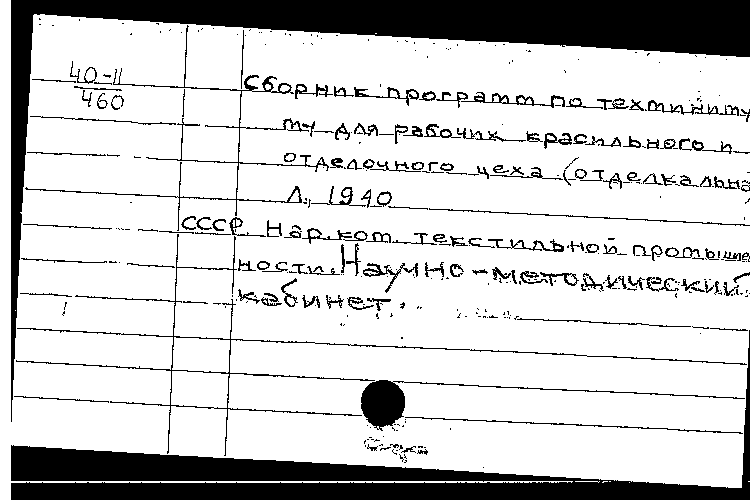 40-11
460
Сборник программ по техминиму
му для рабочих красильного и
отделочного цеха (отделка льна
Л., 1940
СССР. Нар. ком. текстильной промышлен
ности. Научно-методический
кабинет.